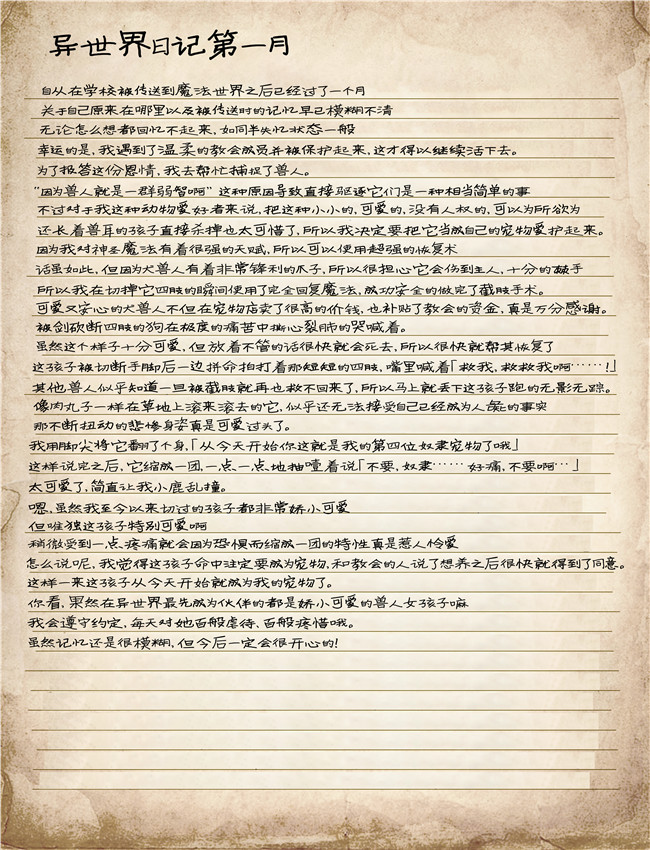 异世界日记第一月
自从在学校被传送到魔法世界之后已经过了一个月
关于自己原来在哪里以及被传送时的记忆早已模糊不清
无论怎么想都回忆不起来，如同半失忆状态一般
幸运的是，我遇到了温柔的教会成员并被保护起来，这才得以继续活下去。
为了报答这份恩情，我去帮忙捕捉了兽人。
“因为兽人就是一群弱智啊”这种原因导致直接驱逐它们是一种相当简单的事
不过对于我这种动物爱好者来说，把这种小小的，可爱的，没有人权的，可以为所欲为
还长着兽耳的孩子直接杀掉也太可惜了，所以我决定要把它当成自己的宠物爱护起来。
因为我对神圣魔法有着很强的天赋，所以可以使用超强的恢复术
话虽如此，但因为犬兽人有着非常锋利的爪子，所以很担心它会伤到主人，十分的棘手
所以我在切掉它四肢的瞬间使用了完全回复魔法，成功安全的做完了截肢手术。
可爱又安心的犬兽人不但在宠物店卖了很高的价钱，也补贴了教会的资金，真是万分感谢。
被剑砍断四肢的狗在极度的痛苦中撕心裂肺的哭喊着。
虽然这个样子十分可爱，但放着不管的话很快就会死去，所以很快就帮其恢复了
这孩子被切断手脚后一边拼命拍打着那短短的四肢，嘴里喊着「救我，救救我啊……！」
其他兽人似乎知道一旦被截肢就再也救不回来了，所以马上就丢下这孩子跑的无影无踪。
像肉丸子一样在草地上滚来滚去的它，似乎还无法接受自己已经成为人彘的事实
那不断扭动的悲惨身姿真是可爱过头了。
我用脚尖将它翻了个身，「从今天开始你这就是我的第四位奴隶宠物了哦」
这样说完之后，它缩成一团，一点一点地抽噎着说「不要，奴隶……好痛，不要啊…」
太可爱了，简直让我小鹿乱撞。
嗯，虽然我至今以来切过的孩子都非常娇小可爱
但唯独这孩子特别可爱啊
稍微受到一点疼痛就会因为恐惧而缩成一团的特性真是惹人怜爱
怎么说呢，我觉得这孩子命中注定要成为宠物，和教会的人说了想养之后很快就得到了同意。
这样一来这孩子从今天开始就成为我的宠物了。
你看，果然在异世界最先成为伙伴的都是娇小可爱的兽人女孩子嘛
我会遵守约定，每天对她百般虐待、百般疼惜哦。
虽然记忆还是很模糊，但今后一定会很开心的！